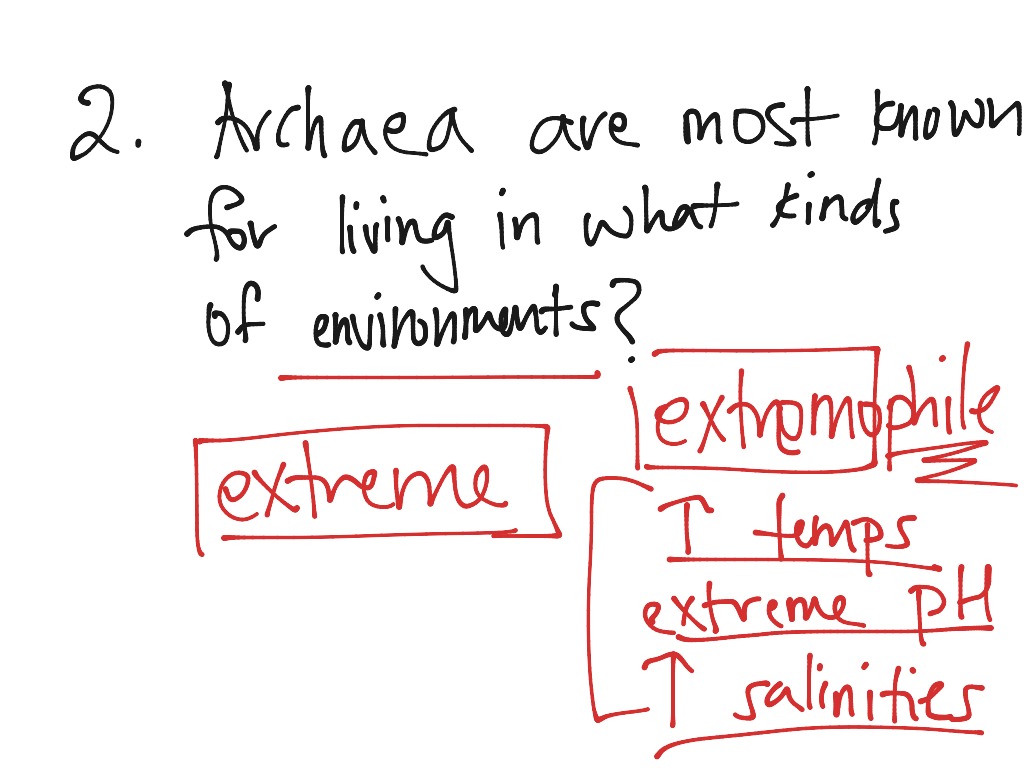 2. Archaea are most known
for living in what kinds
of environments?
extremophile
extreme
↑ temps
extreme pH
↑ salinities